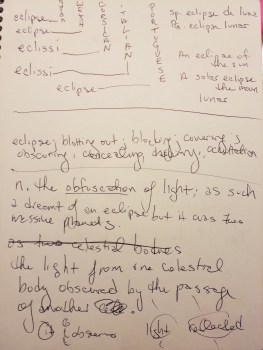 eclipse
eclipse
eclissi
eclissi
eclipse
CORSICAN
ITALIAN
PORTUGUESE
sp. eclipse de luna
Pg. eclipse lunar
An eclipse of
the sun
A solar eclipse
the moon
lunar
eclipse; blotting out; blocking; covering;
obscuring; concealing; occultation
n. the obfuscation of light; as such
a dreamt of an eclipse but it was two
massive planets.
as two celestial bodies
the light from one celestial
body obscured by the passage
of another
observe
light reflected